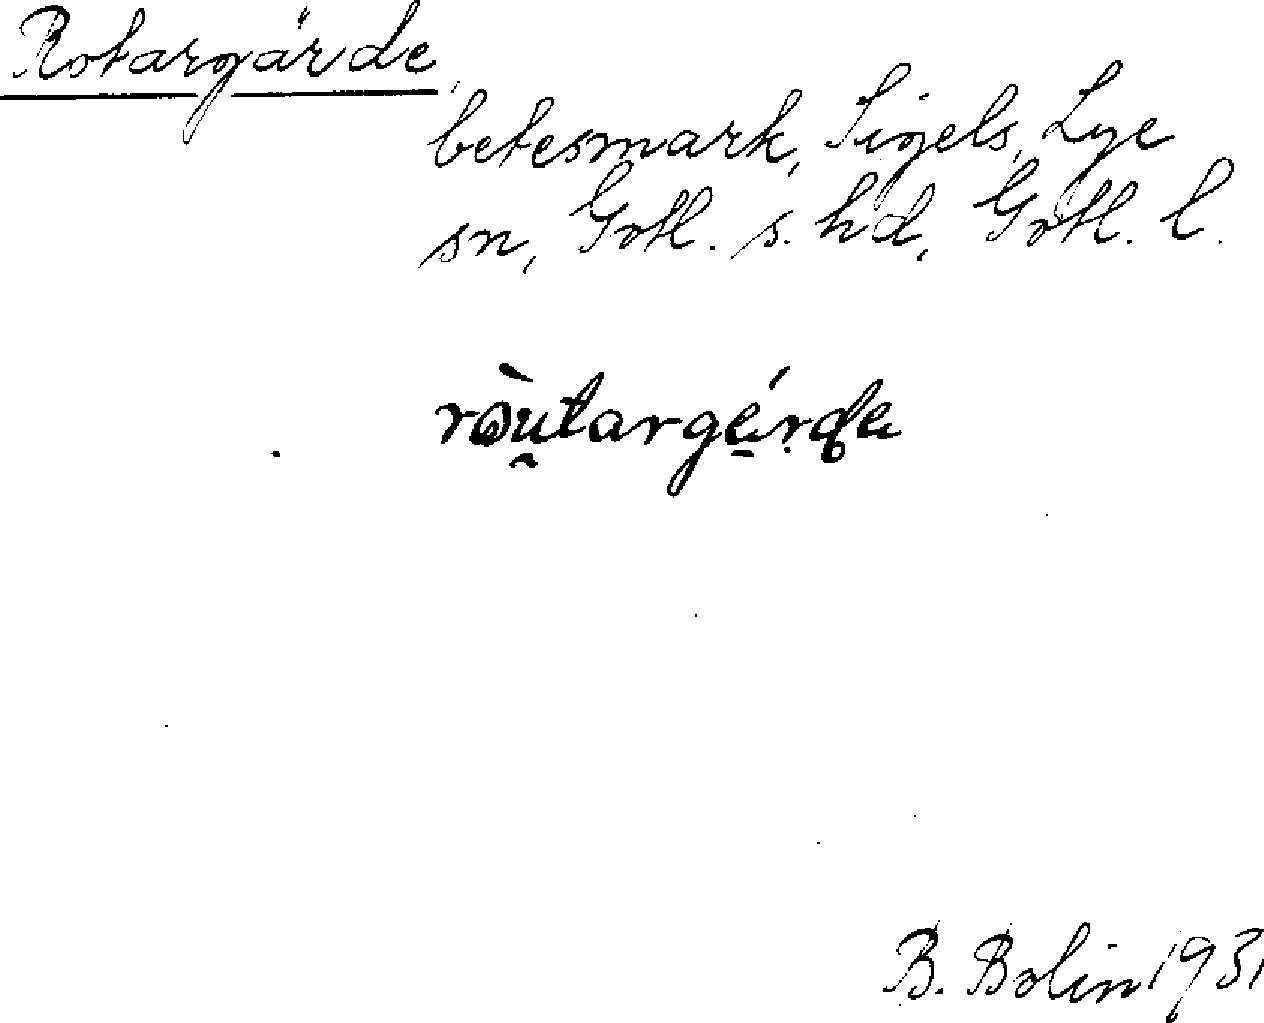 Rotargärde
betesmark, Sigels, Lye
sn, Gotl. s. hd, Gotl. l.
ròu̯targé̠rde
B. Bolin 1931